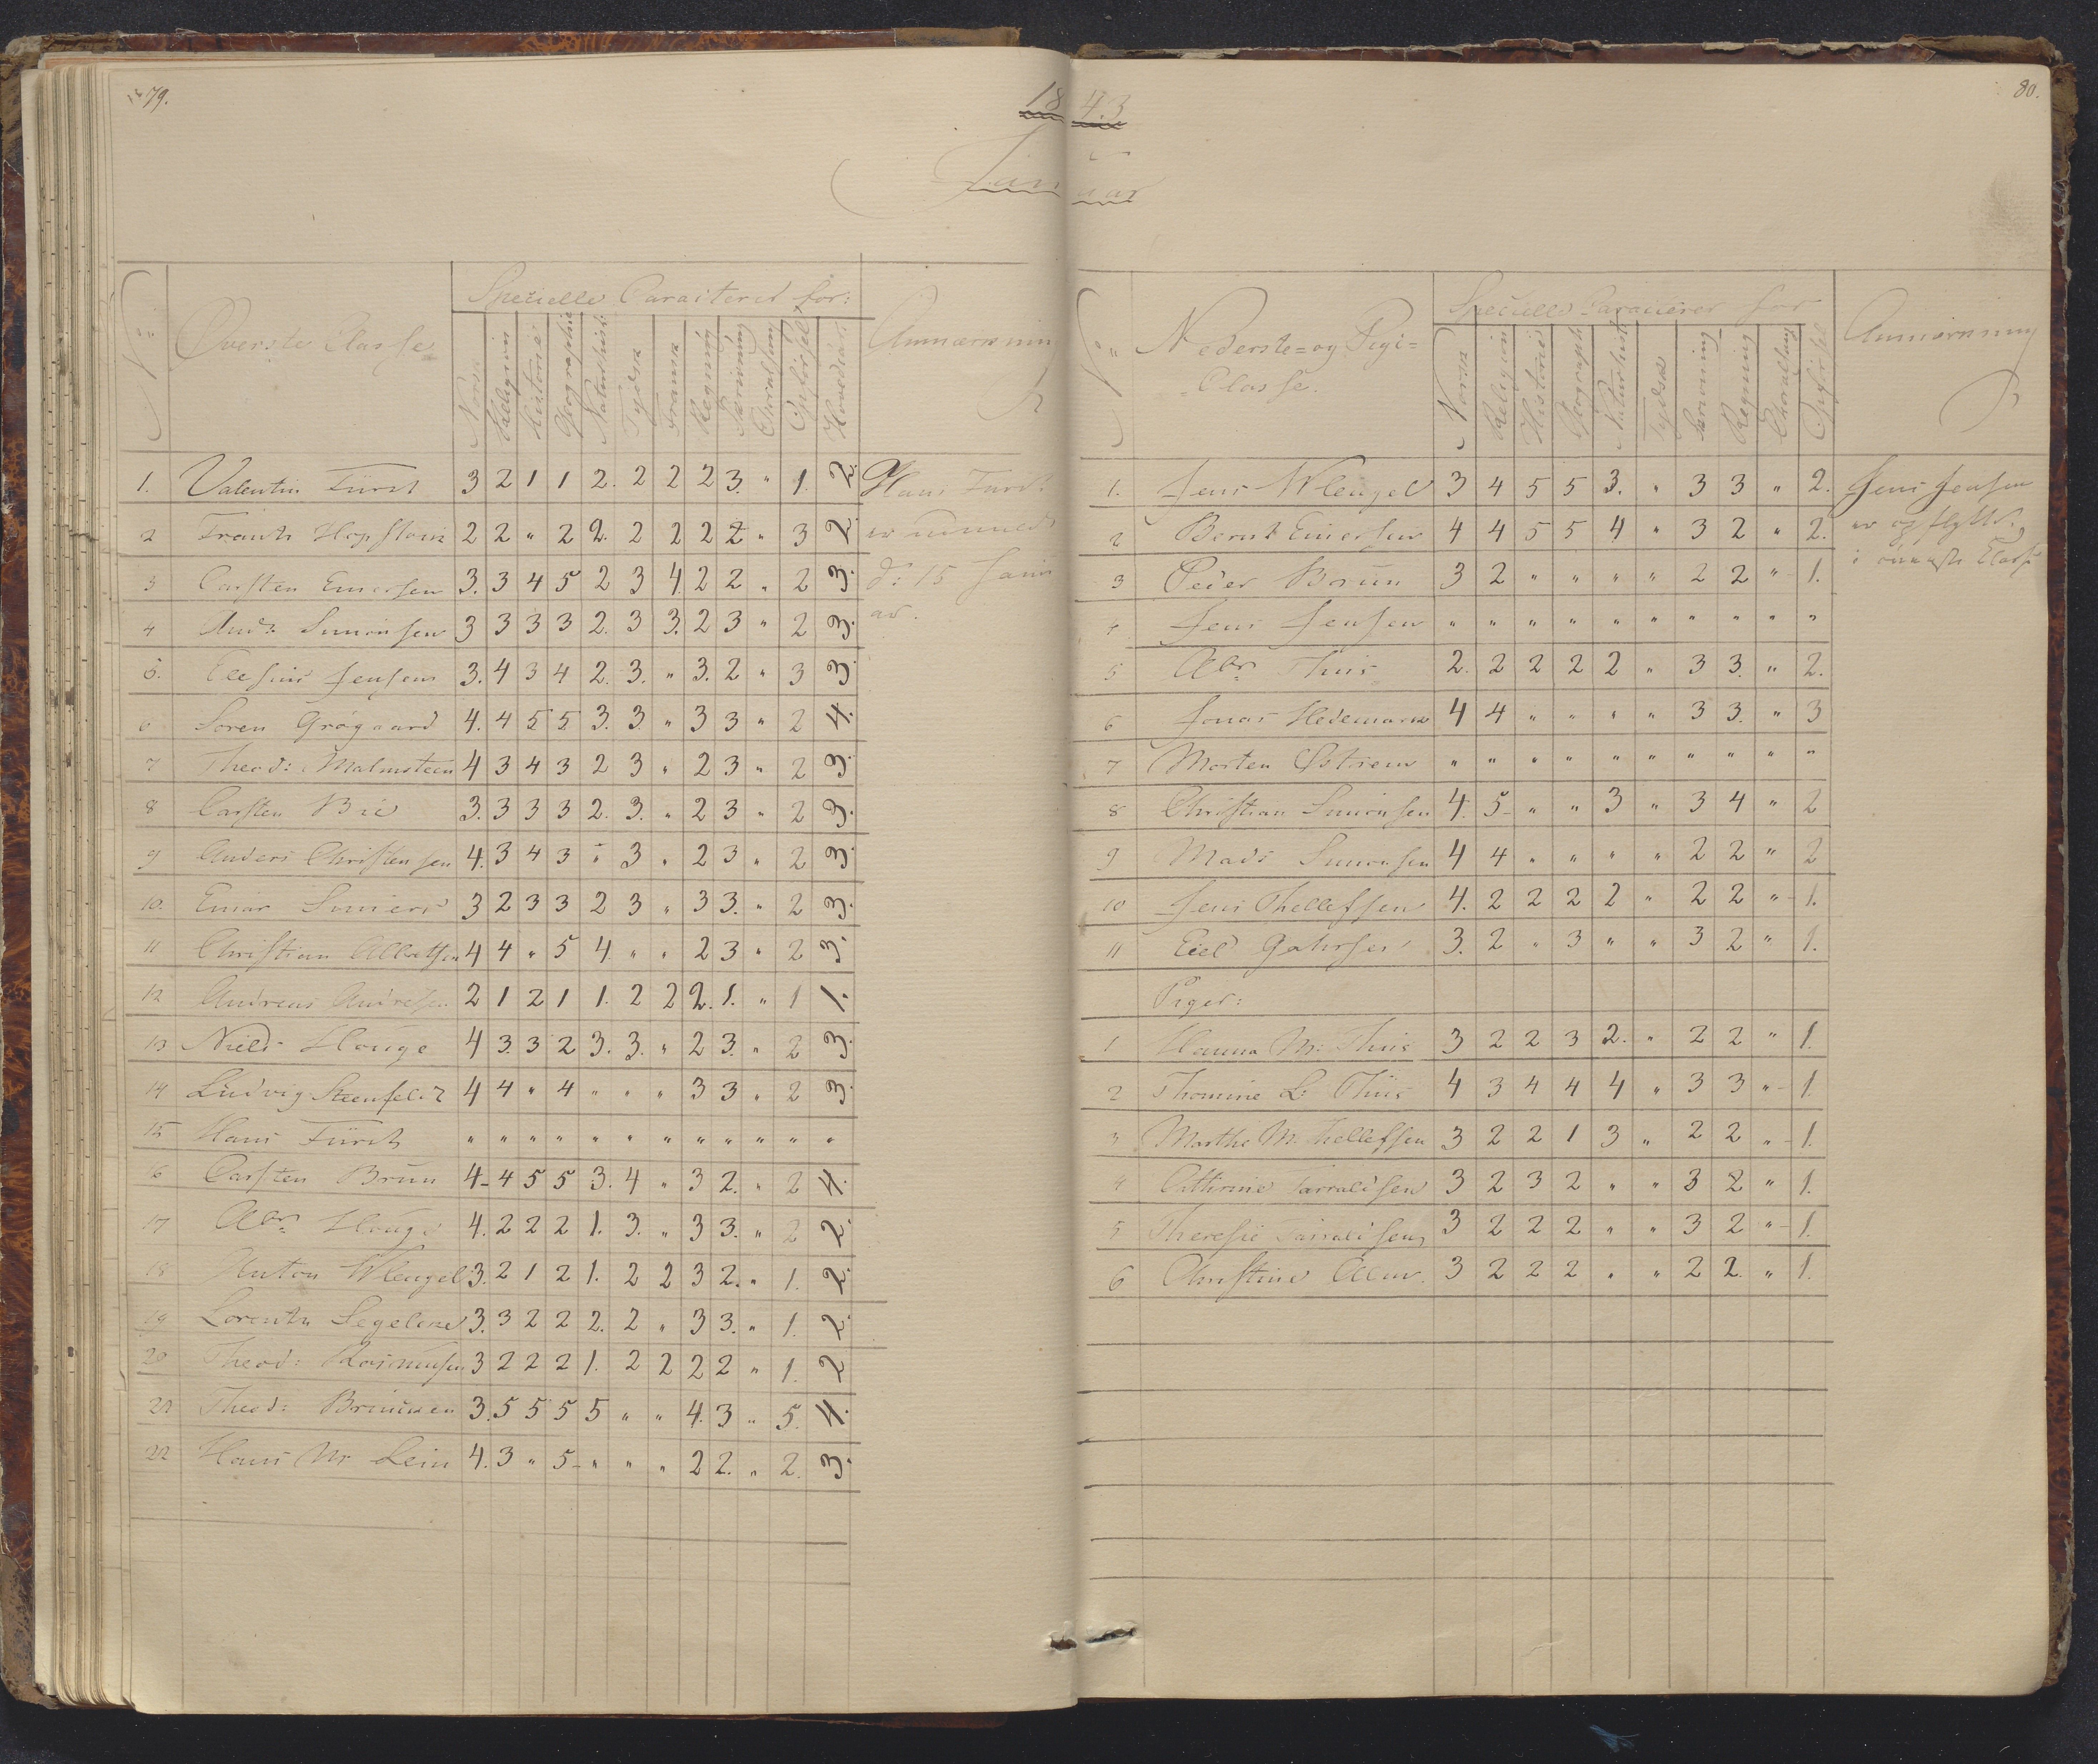 79.
1843
Januar
No:
Øverste Classe
Specielle Caracterer for:
Norsk Religion Historie Geographie Naturhist: Tydsk Fransk Regning Skrivning Choralsang Opførsel Hovedcar:
Anmærkning
1. Valentin Fürst 3 2 1 1 2. 2 2 2 3. " 1. 2.
2 Frantz Hopstock 2 2 " 2 2. 2 2 2 2 " 3 2.
3 Carsten Einersen 3. 3 4 5 2 3 4. 2 2 " 2 3.
4 Andr: Simonsen 3 3 3 3 2. 3 3. 2 3 " 2 3.
5. Ellesius Jensen 3. 4 3 4 2. 3. " 3. 2 " 3 3
6 Soren Grøgaard 4. 4 5 5 3. 3. " 3 3 " 2 4.
7 Theod: Malmsteen 4 3 4 3 2 3 " 2 3 " 2 3.
8 Carsten Bie 3. 3 3 3 2. 3. " 2 3 " 2 3.
9 Anders Christensen 4. 3 4 3 " 3 " 2 3 " 2 3.
10. Einar Smiers 3 2 3 3 2 3 " 3 3. " 2 3.
11 Christian Albretsen 4 4 " 5 4 " " 2 3 " 2 3.
12 Andreas Andresen 2 1 2 1 1. 2 2 2. 1. " 1 1.
13 Niels Houge 4 3. 3 2 3. 3. " 2 3. " 2 3.
14 Ludvig Steenfeldt 4 4 " 4 " " " 3 3 " 2 3.
15 Hans Fürst " " " " " " " " " " " "
16 Carsten Brun 4 4 5 5 3. 4 " 3 2. " 2 4.
17 Abr. Houge 4. 2 2 2 1. 3. " 3 3. " 2 2.
18 Anton Wlengel 3. 2 1 2 1. 2 2 3 2. " 1. 2.
19 Lorentz Segelcke 3. 3 2 2 2. 2 " 3 3. " 1. 2.
20 Theod: Rasmussen 3 2 2 2 1. 2 2 2 2 " 1. 2
21 Theod: 3. 5 5 5 5 " " 4. 3 " 5. 4.
22 Hans Mr Lein 4. 3 " 5 " " " 2 2. " 2. 3.
Hans Fürst
er udmeldt
d: 15 Janu
ar.
80.
No:
Nederste= og Pige=
Classe.
Specielle Caracterer for
Norsk Religion Historie Geograph: Naturhist: Tydsk Skrivning Regning Choralsang Opførsel
Anmærkning
1. Jens Wlengel 3 4 5 5 3. " 3 3 " 2.
2 Bernt Einersen 4 4 5 5 4 " 3 2 " 2.
3 Peder Brun 3 2 " " " " 2 2 " 1.
4 Jens Jensen " " " " " " " " " "
5 Abr. Thiis 2. 2 2 2 2 " 3 3. " 2.
6 Jonas Hedemark 4 4 " " " " 3 3. " 3
7 Morten Østrem " " " " " " " " " "
8 Christian Simonsen 4. 5 " " 3 " 3 4 " 2
9 Mads Simonsen 4 4 " " " " 2 2 " 2
10 Jens Thellefsen 4. 2 2 2 2 " 2 2 " 1.
11 3. 2 " 3 " " 3 2 " 1.
Piger:
1 Hanna M: Thiis 3 2 2 3 2. " 2 2 " 1.
2 Thomine L: Thiis 4 3 4 4 4 " 3 3 " 1.
3 Marthe M. Thellefsen 3 2 2 1 3 " 2 2 " 1.
4 Cathrine Tarraldsen 3 2 3 2 " " 3 2 " 1.
5 Theresie Tarraldsen 3 2 2 2 " " 3 2 " 1.
6 Christine 3 2 2 2 " " 2 2. " 1.
Jens Jensen
er opflytt.
i øverste Classe